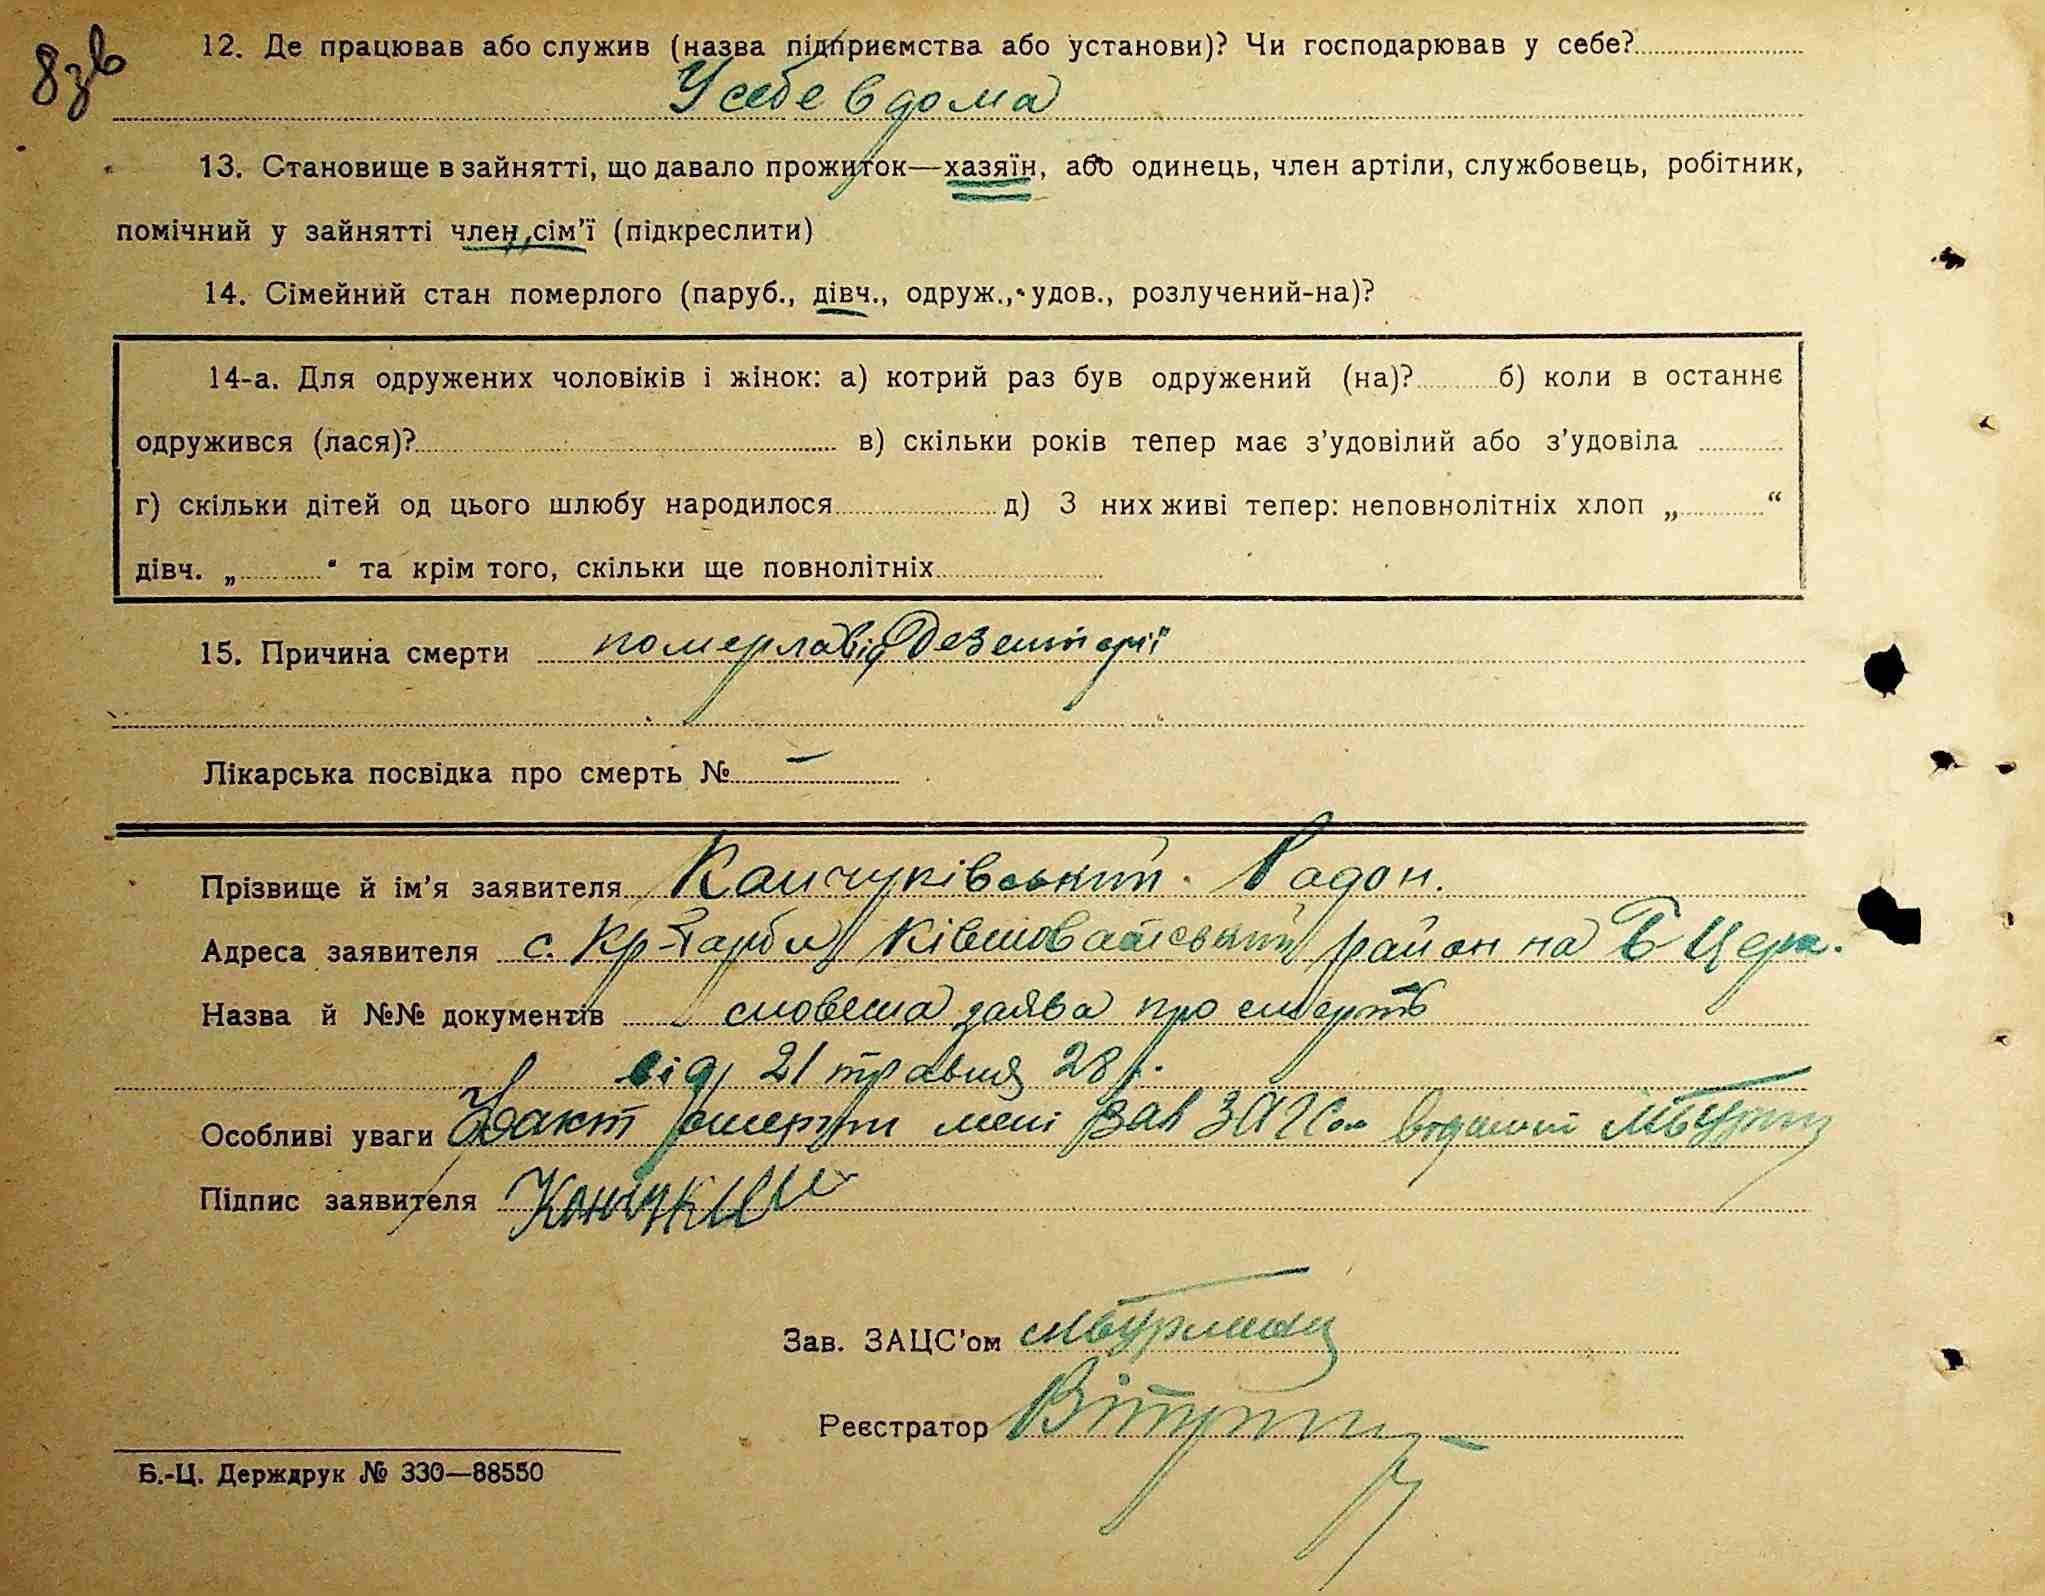 8зв
12. Де працював або служив (назва підприємства або установи)? Чи господарював у себе?
У себе вдома
13. Становище в зайнятті, що давало прожиток—хазяїн, або одинець, член артіли, службовець, робітник,
помічний у зайнятті член сім'ї (підкреслити)
14. Сімейний стан померлого (паруб., дівч., одруж., удов., розлучений-на)?
14-а. Для одружених чоловіків і жінок: а) котрий раз був одружений (на)? б) коли в останнє
одружився (лася)? в) скільки років тепер має з'удовілий або з'удовіла
г) скільки дітей од цього шлюбу народилося д) З них живі тепер: неповнолітніх хлоп „ “
дівч. „ “ та крім того, скільки ще повнолітніх
15. Причина смерти померла від Дезентерії
Лікарська посвідка про смерть № —
Прізвище й ім'я заявителя Канчуківський Радон.
Адреса заявителя с. Кр-Гарбл район на Б Церк.
Назва й №№ документів словесна заява про смерть
від 21 травня 28 р.
Особливі уваги Факт смерти мені зав ЗАЦСом відомий
Підпис заявителя
Зав. ЗАЦС'ом
Реєстратор
Б.-Ц. Держдрук № 330—88550